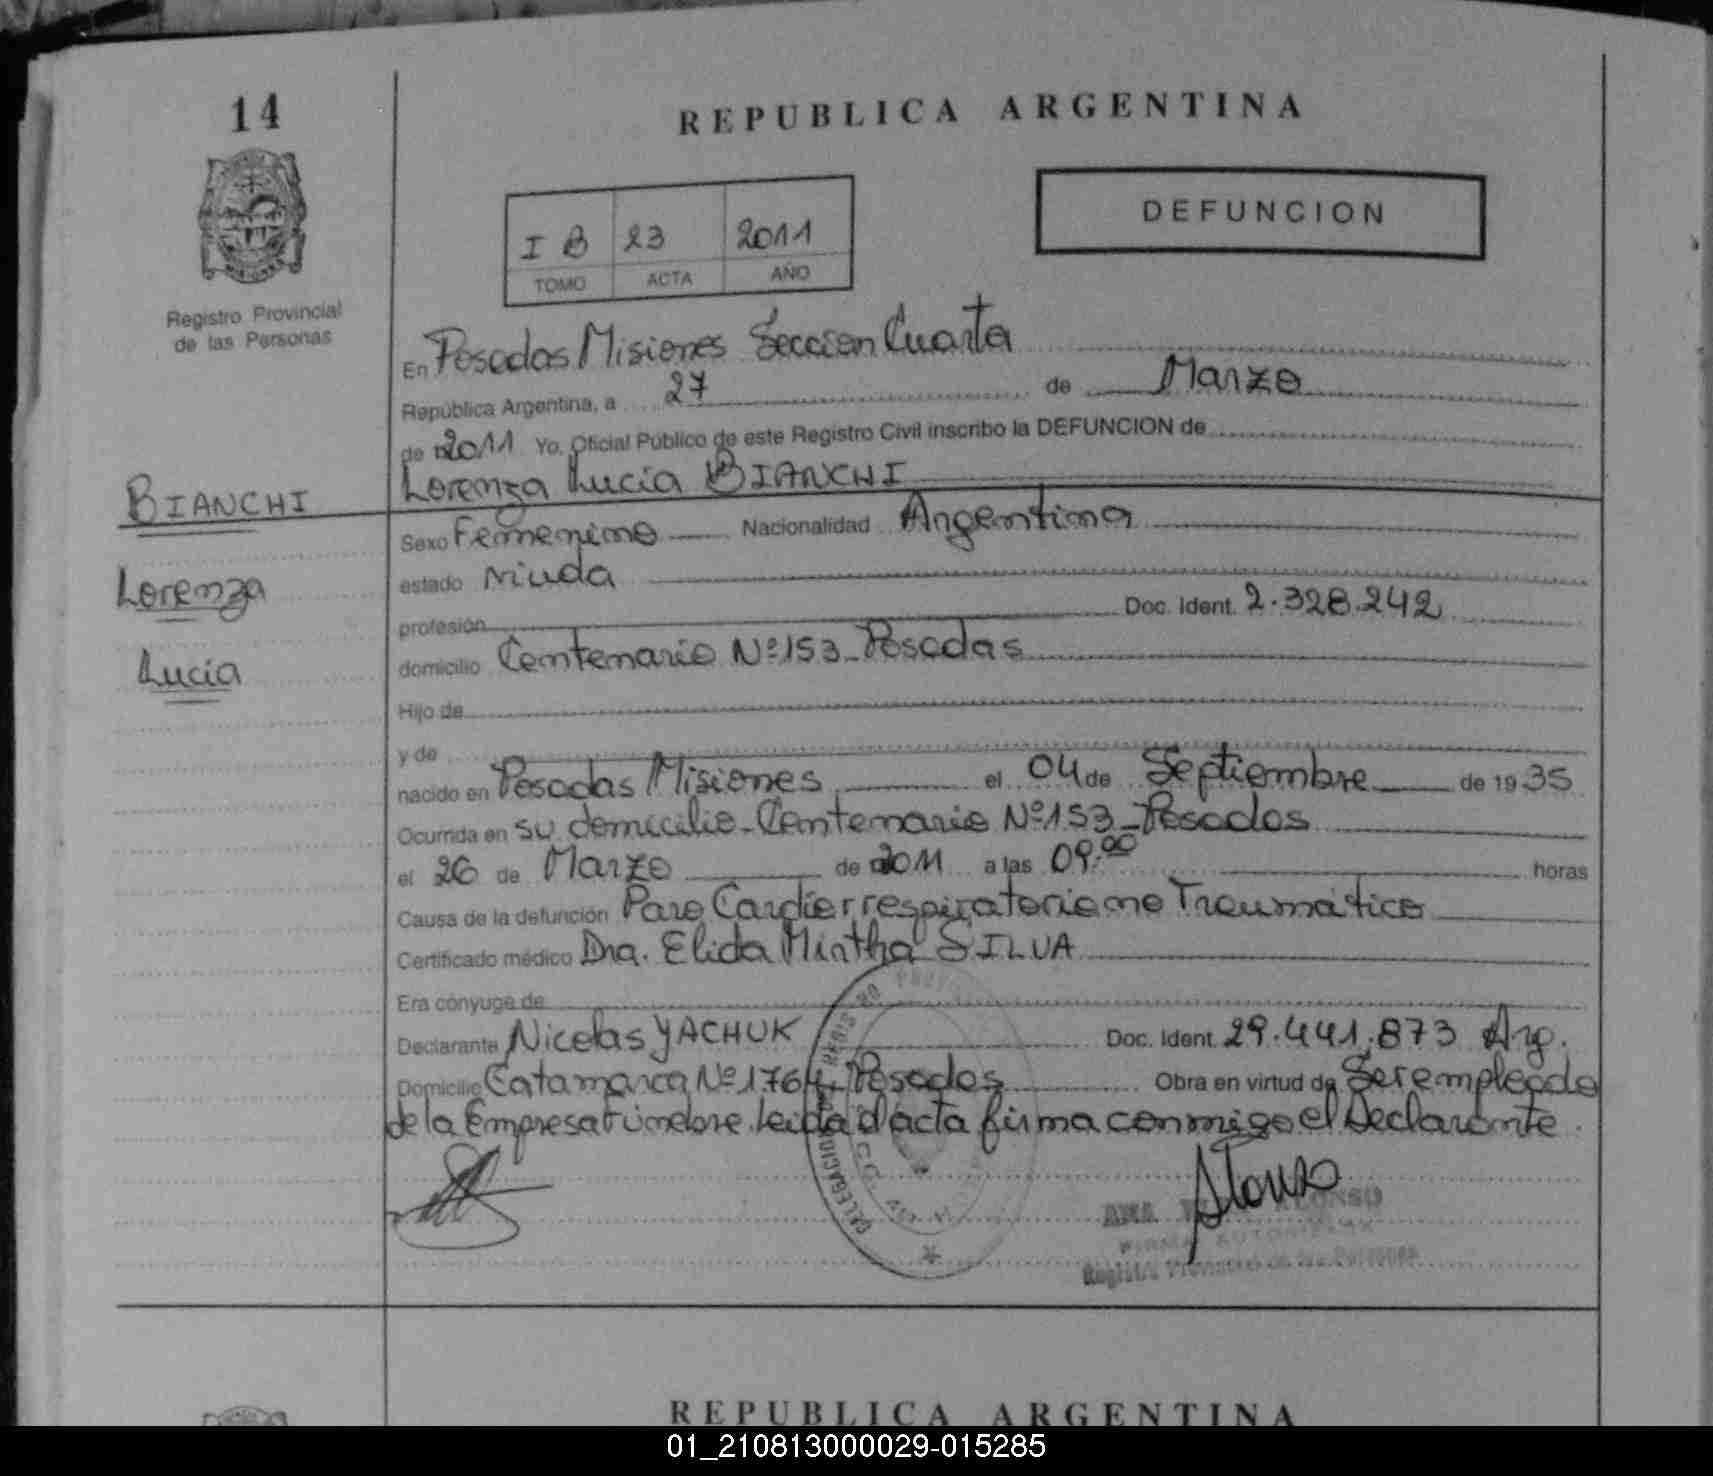 14
REPUBLICA ARGENTINA
DEFUNCION
I B 23 2011
TOMO ACTA AÑO
Registro Provincial
de las Personas
En Posadas Misiones Seccion Cuarta
República Argentina, a 27 de Marzo
de 2011 Yo, Oficial Público de este Registro Civil inscribo la DEFUNCION de
Lorenza Lucia BIANCHI
BIANCHI
Lorenza
Lucia
Sexo Femenino Nacionalidad Argentina
estado viuda
profesión Doc. Ident. 2.328.242
domicilio Centenario Nº 153 - Posadas
Hijo de
y de
nacido en Posadas Misiones el 04 de Septiembre de 1935
Ocurrida en su domicilio - Centenario Nº 153 - Posadas
el 26 de Marzo de 2011 a las 09:00 horas
Causa de la defunción Paro Cardiorrespiratorio no Traumático
Certificado médico Dra. Elida Mirtha SILVA
Era cónyuge de
Declarante Nicolas YACHUK Doc. Ident. 29.441.873 Arg.
Domicilio Catamarca Nº 1764 - Posadas Obra en virtud de Ser empleado
de la Empresa Fúnebre. Leida el acta firma conmigo el Declarante.
Alonso
ANA ALONSO
FIRMA AUTORIZADA
Registro Provincial de las Personas
REPUBLICA ARGENTINA
01_210813000029-015285